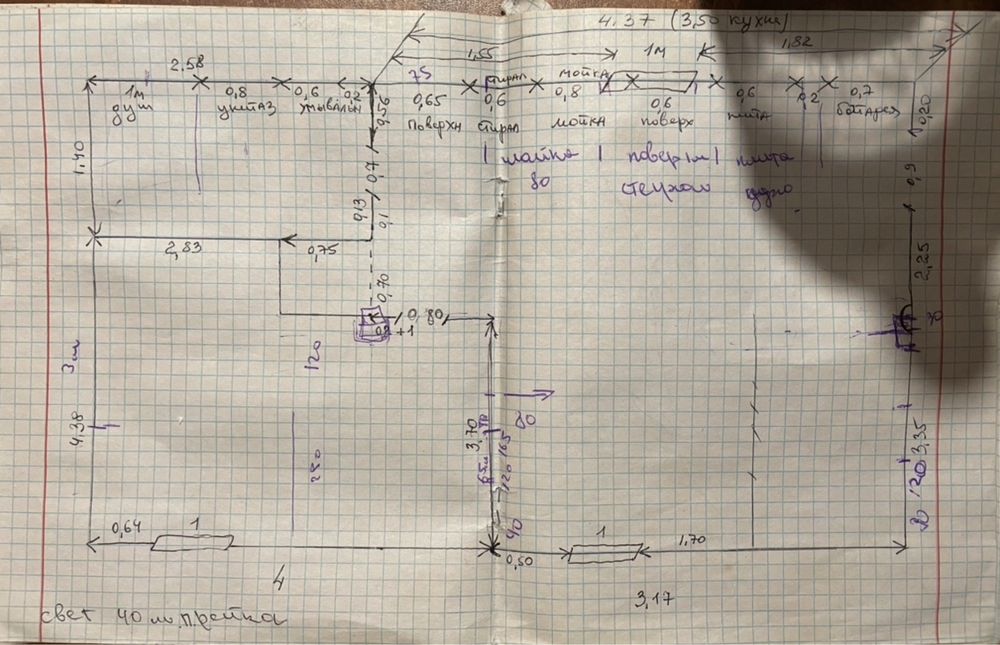 4.37 (3,50 кухня)
1,55
1м
1,82
2,58
75
стирал
мойка
1м
0,8
0,6
0,2
0,65
0,6
0,8
0,6
0,6
0,2
0,7
душ
унитаз
умывальн
поверхн
стирал
мойка
поверх
плита
батарея
0,56
0,20
1,40
0,7
0,9
мойка
поверхн
плита
80
0,13
0,1
2,83
0,75
0,70
2,25
0,80
70
0,2+1
120
3м
80
4,38
3,70
3,35
280
165
120
120
40
0,64
1
1
1,70
0,50
4
3,17
свет 40 м. пройка